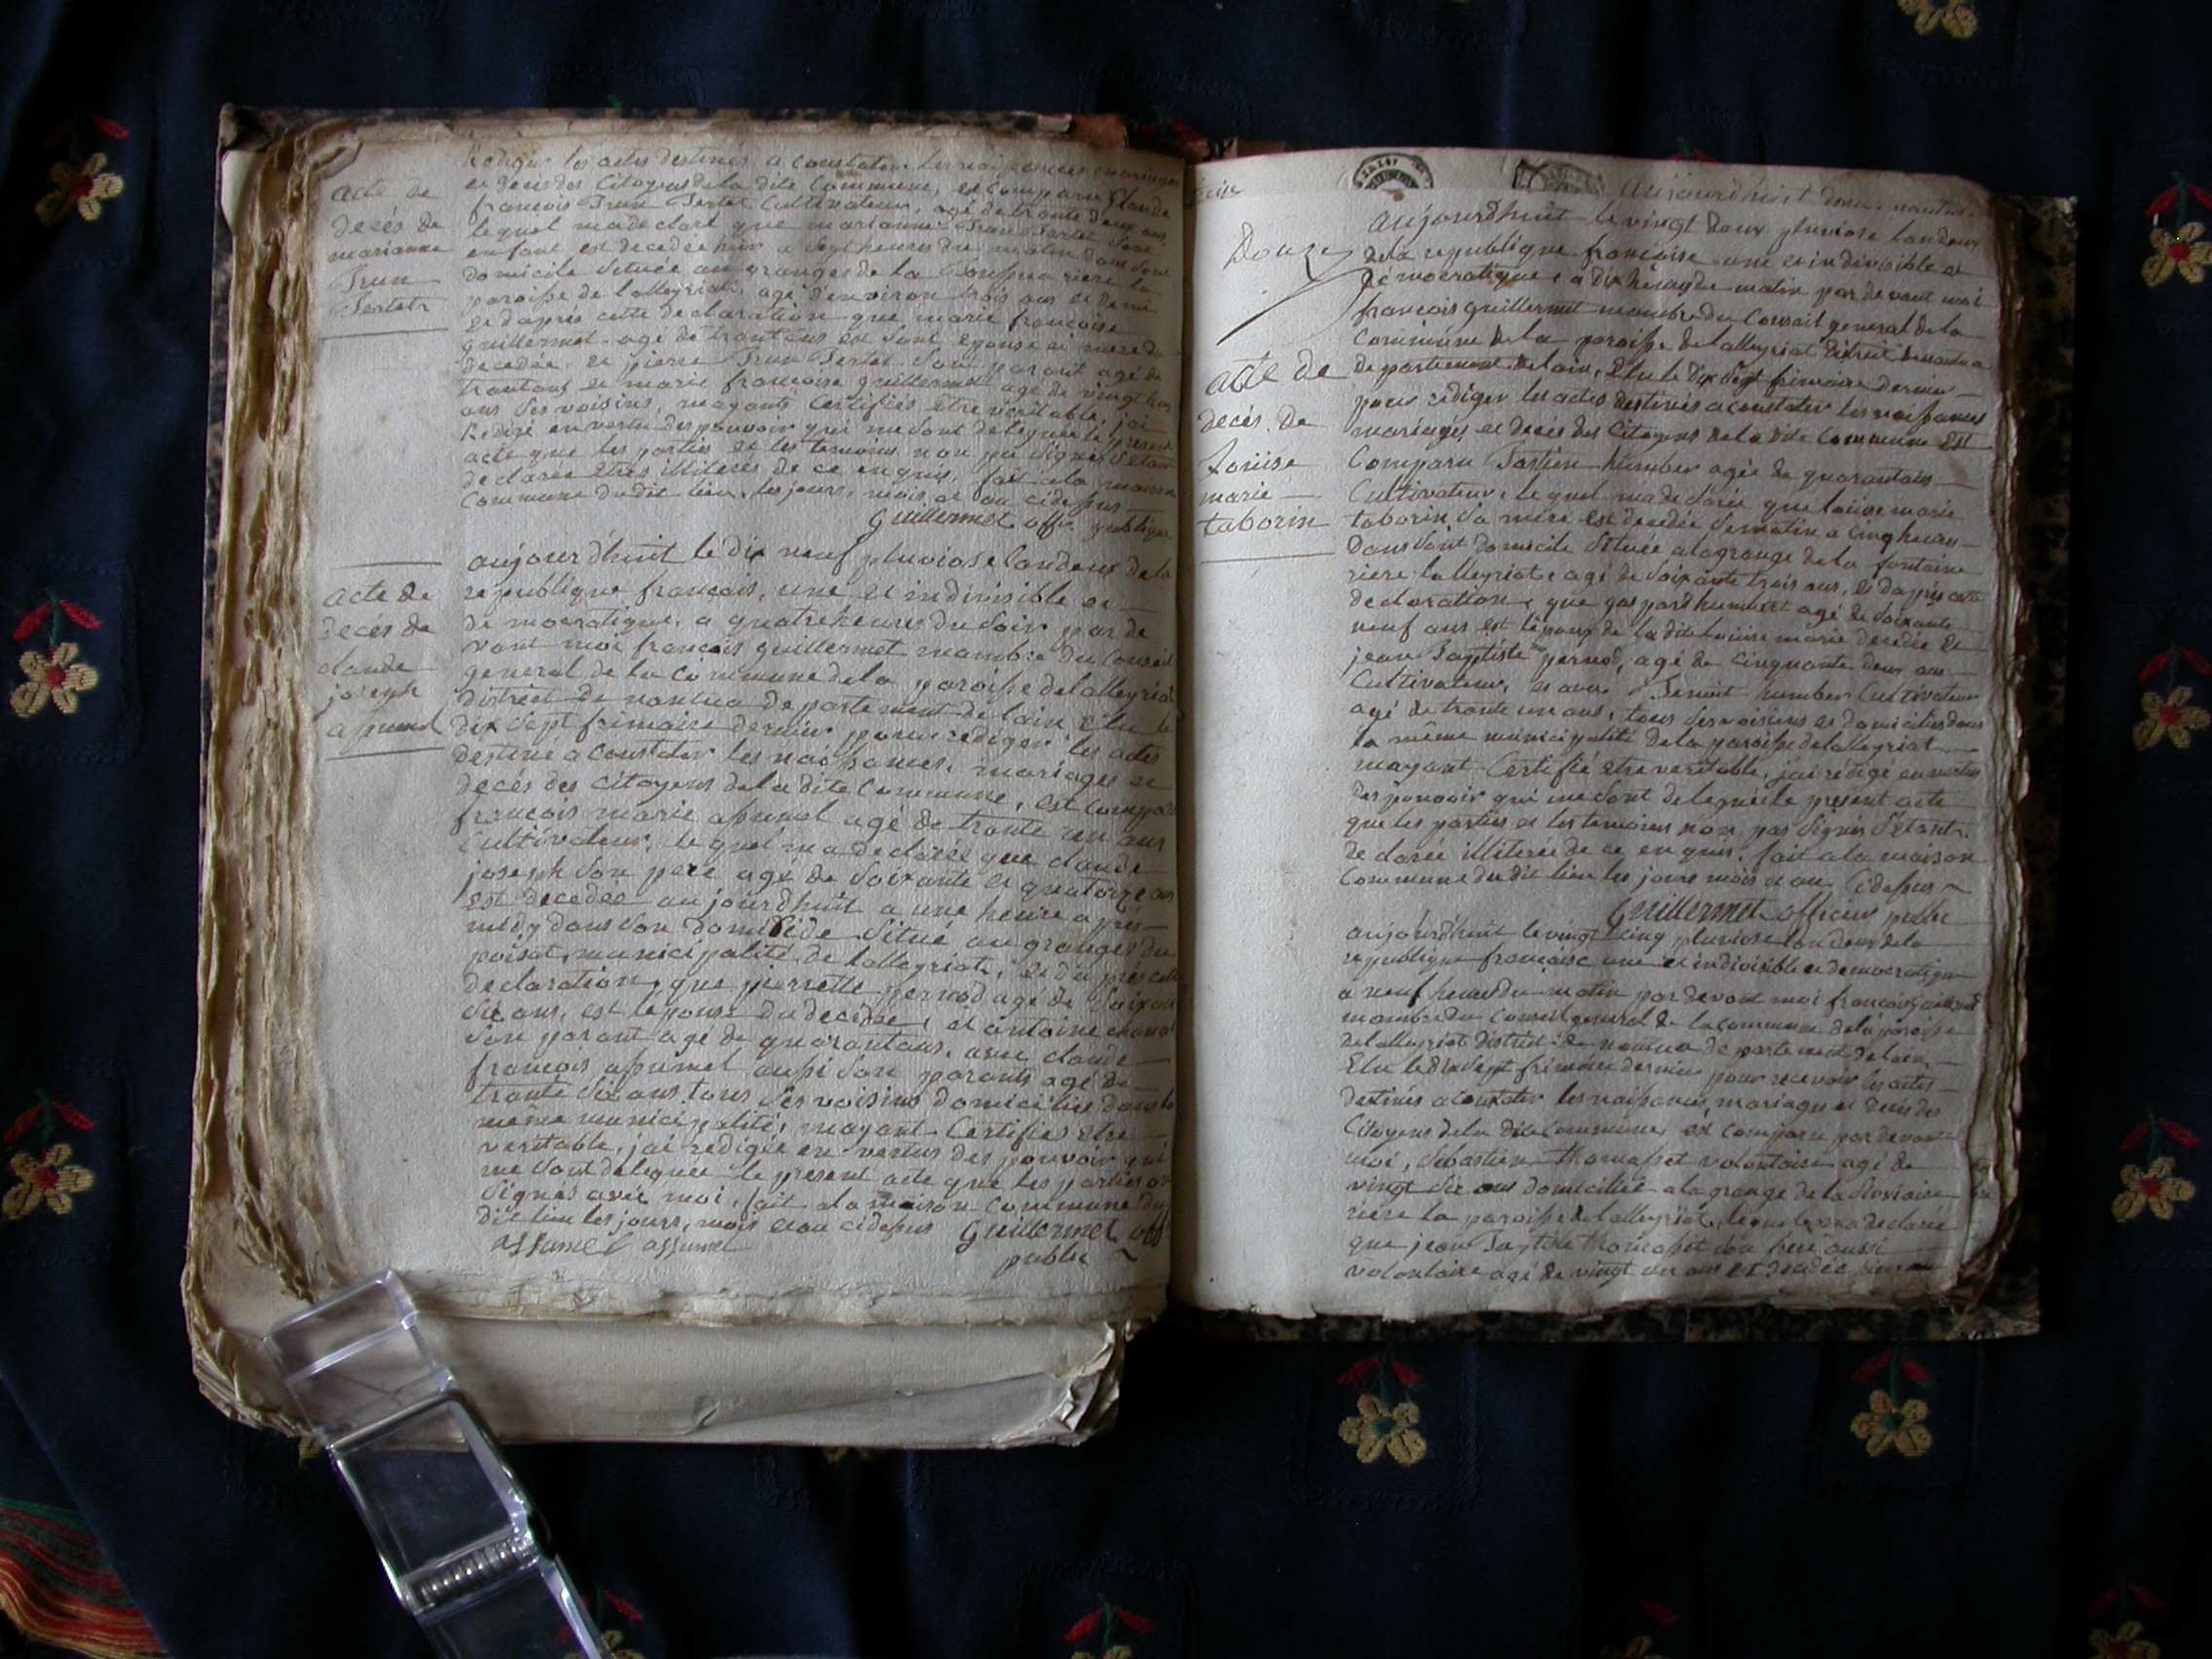 Rediger les actes destinés a constater les naissances mariages
et decés des Citoyens de la dite Commune, est comparu Claude
françois Cultivateur, agé de trante deux ans
lequel ma declaré que marianne son
enfant est decedée hier a sept heures du matin dans son
domicile située au granges de la riere la
paroisse de lalleyriat, agé d'environ trois ans et demi
et dapres cette declaration que marie françoise
guillermet agé de trant ans est sont epouse et mere de
decedée, et pierre sont parant agé de
trantans et marie françoise guillermet agé de vingt
ans ses voisins, mayants Certifiés etre veritable, jai
Redigé en vertu des pouvoir qui me sont delequée le present
acte que les parties et les temoins non pu signés s'etant
declarée etres illiterés de ce enquis, fait a la maison
Commune du dit lieu, les jours, mois et an cidessus
Guillermet offi publique
acte de
decés de
marianne
aujourd'huit le dix neuf pluviose landeux de la
republique francais, une et indivisible et
democratique, a quatre heures du soir par de
vant moi francois guillermet mambre du Conseil
general de la Commune de la paroisse de lalleyriat
district de nantua departement de lain Elu le
dix sept frimaire dernier pour rediger les actes
destiné a constater les naissances, mariages et
decés des citoyens de la dite Commune, est Compar
francois marie assumel agé de trante un ans
Cultivateur, le quel ma declarée que claude
joseph son pere agé de soixante et quatorze ans
est decedée aujourdhuit a une heure aprés
midy dans son domicide situé au granges du
poisat, municipalité de lalleyriat, et da prés cette
declaration, que pierrette pernod agé de soixan
six ans, est lepouse du decedée, et antoine
son parant agé de quarantans, avec claude
françois assumel aussi son parants agé de
trante six ans tous ses voisins domiciliés dans la
même municipalité, mayant Certifiés etre
veritable, jai redigée en vertus des pouvoir qui
me sont delequée le present acte que les parties on
signés avec moi, fait a la maison Commune du
dit lieu les jours, mois et an cidessus Guillermet off
assumel assumel
public
acte de
decés de
claude
joseph
assumel
aujourdhuit nantua
Douze
aujourdhuit le vingt deux pluviose landeux
de la republique francoise une et indivisible et
démocratique, a dix heures de matin par devant moi
francois guillermet mambre du Conseil general de la
Commune de la paroisse de lalleyriat district de nantua
departement de lain, Elu le dix sept frimaire dernier
pour rediger les actes destinés a constater les naissances
mariages, et decés des Citoyens de la dite Commune Est
Comparu humber agée de quarantans
Cultivateur, le quel ma declarée que louise marie
taborin, sa mere est decedée sematin a cinq heures
dans sont domicile située a la grange de la fontaine
riere lalleyriat, agé de soixante trois ans, et dapres cette
declaration, que gaspard humbert agé de soixante
neuf ans est lépoux de la dite louise marie decedée et
jean Baptiste pernod, agé de Cinquante deux ans
Cultivateur, et avec Benoit humber Cultivateur
agé de trante un ans, tous ses voisins et domiciliés dans
la même municipalité de la paroisse de lalleyriat
mayant Certifié etre veritable, jai rédigé en vertus
des pouvoir qui me sont delequée le present acte
que les parties et les temoins non pas signés s'étant
declarée illiterée de ce enquis, fait a la maison
Commune du dit lieu les jours mois et an Cidessus
Guillermet officier public
acte de
decés, de
Louise
marie
taborin
aujourdhuit le vingt cinq pluviose landeux de la
republique francaise une et indivisible et democratique
a neuf heures du matin par devant moi francois guillermet
mambre du Conseil general de la commune de la paroisse
de lalleyriat district de nantua departement de lain
Elu le dix sept frimaire dernier pour recevoir les actes
destinés a constater les naissances, mariages et decés des
Citoyens de la dite Commune, est comparu par devant
moi, sebastien thomasset volontaire agé de
vingt six ans domiciliée a la grange de la
riere la paroisse de lalleyriat, lequel ma declarée
que jean Baptiste thomasset son frere aussi
volontaire agé de vingt un ans est decedée